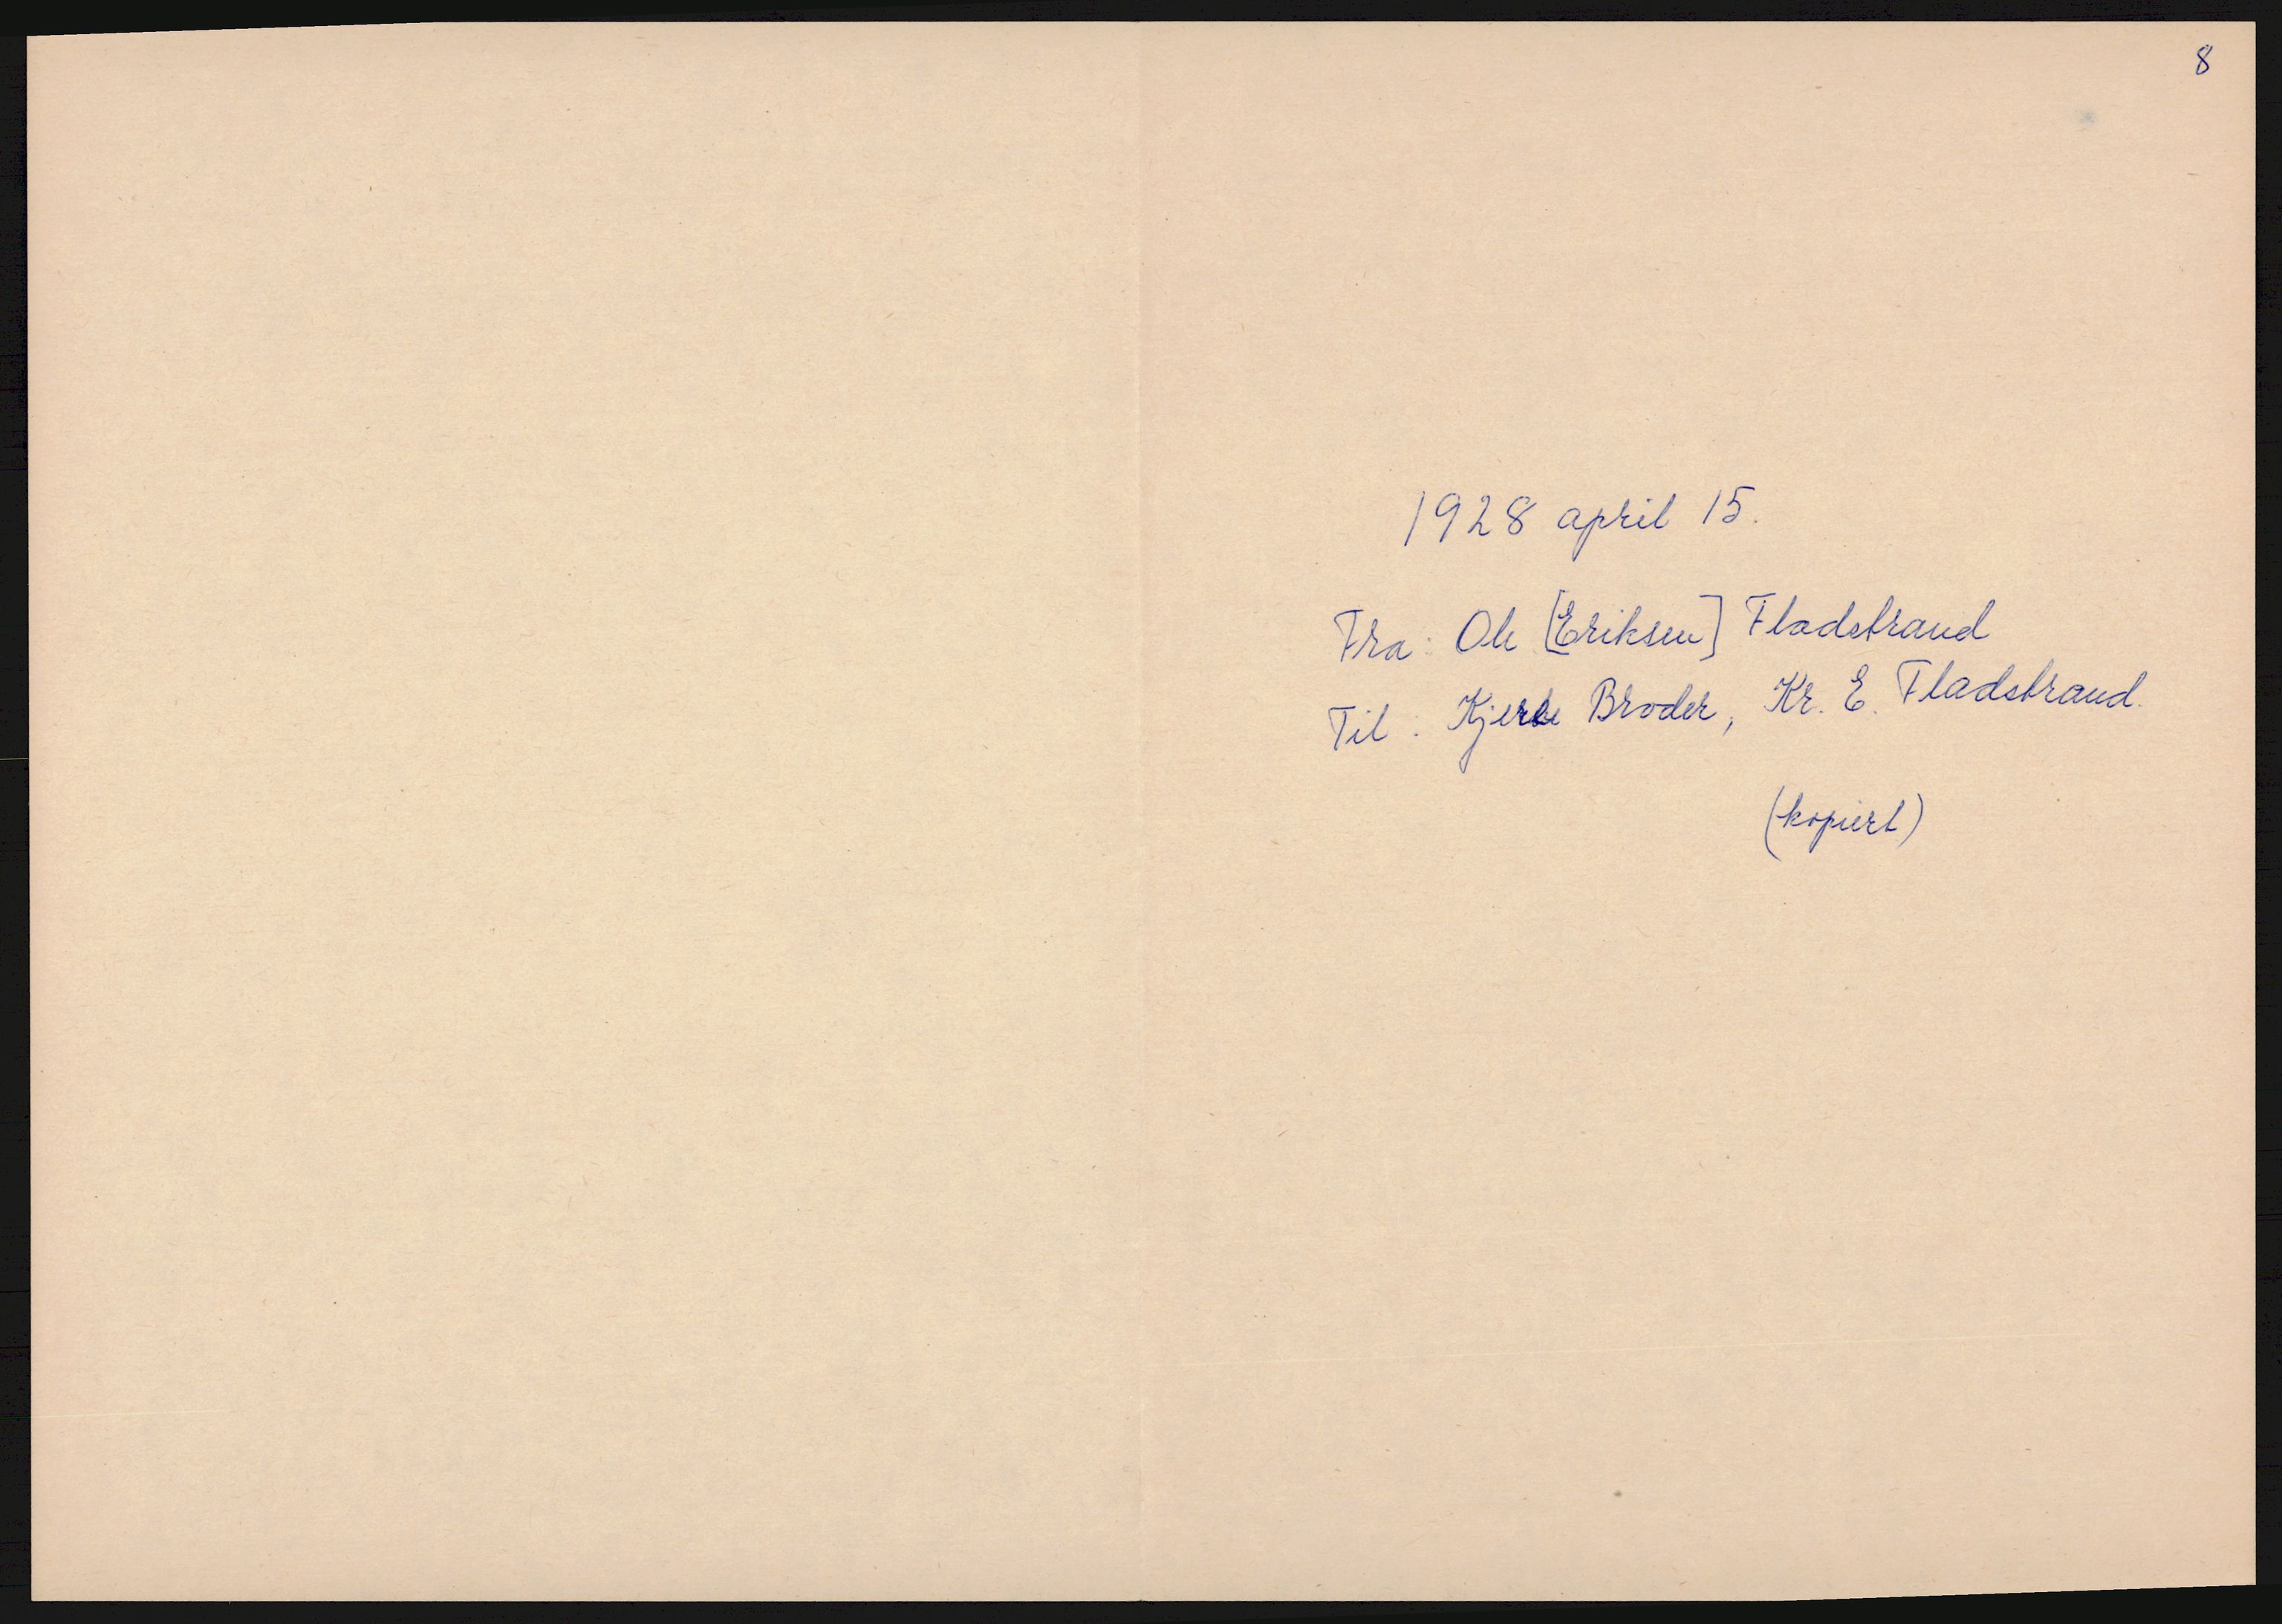 8
1928 april 15.
Fra: Ole [Eriksen] Fladstrand
Til: Kjere Broder, Kr. E. Fladstrand.
(kopiert)